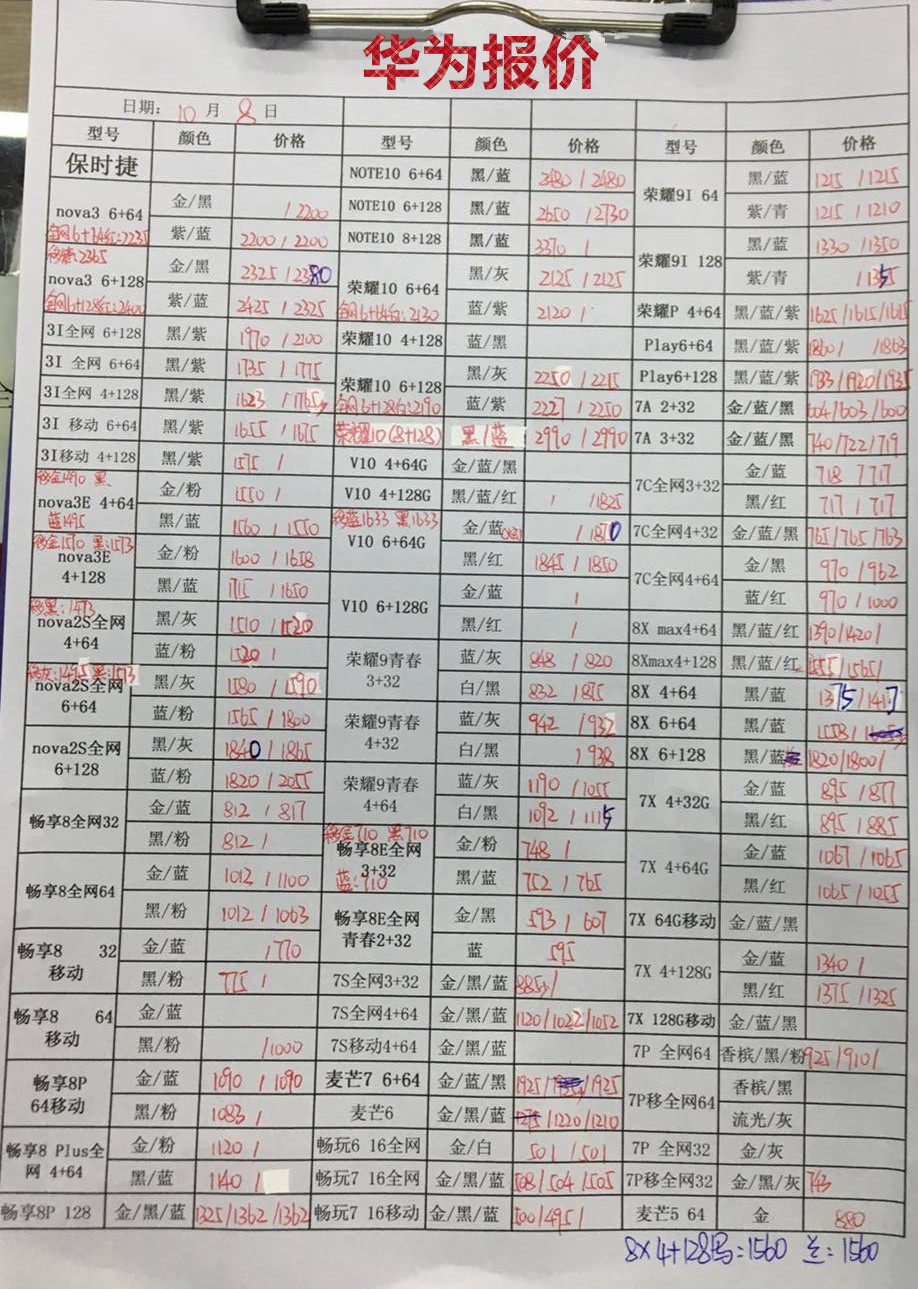 华为报价
日期: 10 月 8 日
型号 颜色 价格 型号 颜色 价格 型号 颜色 价格
保时捷
NOTE10 6+64 黑/蓝 2480 / 2480
荣耀9I 64 黑/蓝 1215 / 1215
紫/青 1215 / 1210
nova3 6+64 金/黑 / 2200
全网6+64红:2235 紫/蓝 2200 / 2200
NOTE10 6+128 黑/蓝 2650 / 2730
NOTE10 8+128 黑/蓝 2370 /
荣耀9I 128 黑/蓝 1330 / 1350
紫/青
nova3 6+128 金/黑 2325 / 2380
全网6+128红:2400 紫/蓝 2425 / 2325
荣耀10 6+64 黑/灰 2125 / 2125
蓝/紫 2120 /
荣耀P 4+64 黑/蓝/紫 1625/1615/1615
3I全网 6+128 黑/紫 1970 / 2100
荣耀10 4+128 蓝/黑
Play6+64 黑/蓝/紫 1860/ /1863
3I 全网 6+64 黑/紫 1735 / 1775
荣耀10 6+128 黑/灰 2250 / 2215
蓝/紫 2227 / 2250
Play6+128 黑/蓝/紫 1933/1920/1935
3I全网 4+128 黑/紫 1623 / 1765
7A 2+32 金/蓝/黑 604/603/600
3I 移动 6+64 黑/紫 1655 / 1675
荣耀10(8+128) 黑/蓝 2990 / 2990
7A 3+32 金/蓝/黑 740/722/719
3I移动 4+128 黑/紫 1575 /
V10 4+64G 金/蓝/黑
7C全网3+32 金/蓝 718 / 717
黑/红 717 / 717
nova3E 4+64 金/粉 1550 /
蓝1495 黑/蓝 1560 / 1550
V10 4+128G 黑/蓝/红 / /1825
移蓝1633 黑1633
V10 6+64G 金/蓝 / 1870
黑/红 1845 / 1850
7C全网4+32 金/蓝/黑 765/765/763
移金1570 黑:1573
nova3E 4+128 金/粉 1600 / 1658
黑/蓝 1715 / 1650
7C全网4+64 金/黑 970 / 962
蓝/红 970 / 1000
V10 6+128G 金/蓝 /
黑/红 /
移黑:1473
nova2S全网 4+64 黑/灰 1510 / 1520
蓝/粉 1520 /
8X max4+64 黑/蓝/红 1390/1420/
荣耀9青春 3+32 蓝/灰 848 / 820
白/黑 832 / 875
8Xmax4+128 黑/蓝/红 1555/1565/
nova2S全网 6+64 黑/灰 1580 / 1590
蓝/粉 1565 / 1800
8X 4+64 黑/蓝 1375/1417
荣耀9青春 4+32 蓝/灰 942 / 932
白/黑 / 938
8X 6+64 黑/蓝 1558/
nova2S全网 6+128 黑/灰 1840 / 1865
蓝/粉 1820 / 2055
8X 6+128 黑/蓝 1820/1800/
荣耀9青春 4+64 蓝/灰 1190 / 1055
白/黑 1092 / 1115
7X 4+32G 金/蓝 895 / 877
黑/红 895 / 885
畅享8全网32 金/蓝 812 / 817
黑/粉 812 /
移金710 黑710
畅享8E全网 3+32 金/粉 748 /
蓝:710 黑/蓝 752 / 765
7X 4+64G 金/蓝 1067 / 1065
黑/红 1065 / 1055
畅享8全网64 金/蓝 1012 / 1100
黑/粉 1012 / 1063
畅享8E全网 青春2+32 金/黑 593 / 607
蓝 595
7X 64G移动 金/蓝/黑
畅享8 32 移动 金/蓝 / 770
黑/粉 775 /
7S全网3+32 金/黑/蓝 885/
7X 4+128G 金/蓝 1340 /
黑/红 1375 / 1325
畅享8 64 移动 金/蓝
黑/粉 /1000
7S全网4+64 金/黑/蓝 1120/1022/1052
7X 128G移动 金/蓝/黑
7S移动4+64 金/黑/蓝
7P 全网64 香槟/黑/粉 925/910/
畅享8P 64移动 金/蓝 1090 / 1090
黑/粉 1083 /
麦芒7 6+64 金/蓝/黑
7P移全网64 香槟/黑
流光/灰
麦芒6 金/黑/蓝 /1220/1210
畅享8 Plus全网 4+64 金/粉 1120 /
黑/蓝 1140 /
畅玩6 16全网 金/白 501 / 501
7P 全网32 金/灰
畅玩7 16全网 金/黑/蓝 508/504/505
7P移全网32 金/黑/灰 743
畅享8P 128 金/黑/蓝 1325/1362/1362
畅玩7 16移动 金/黑/蓝 500/495/
麦芒5 64 金 880
8X 4+128黑:1560 兰:1560